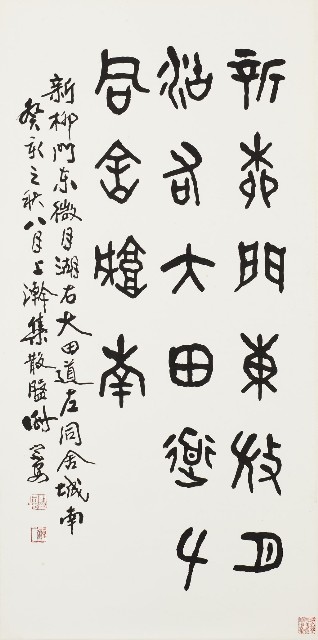 新柳門東微月
湖右大田道左
同舍城南
新柳門東微月湖右大田道左同舍城南
癸亥之秋八月上澣集散盤